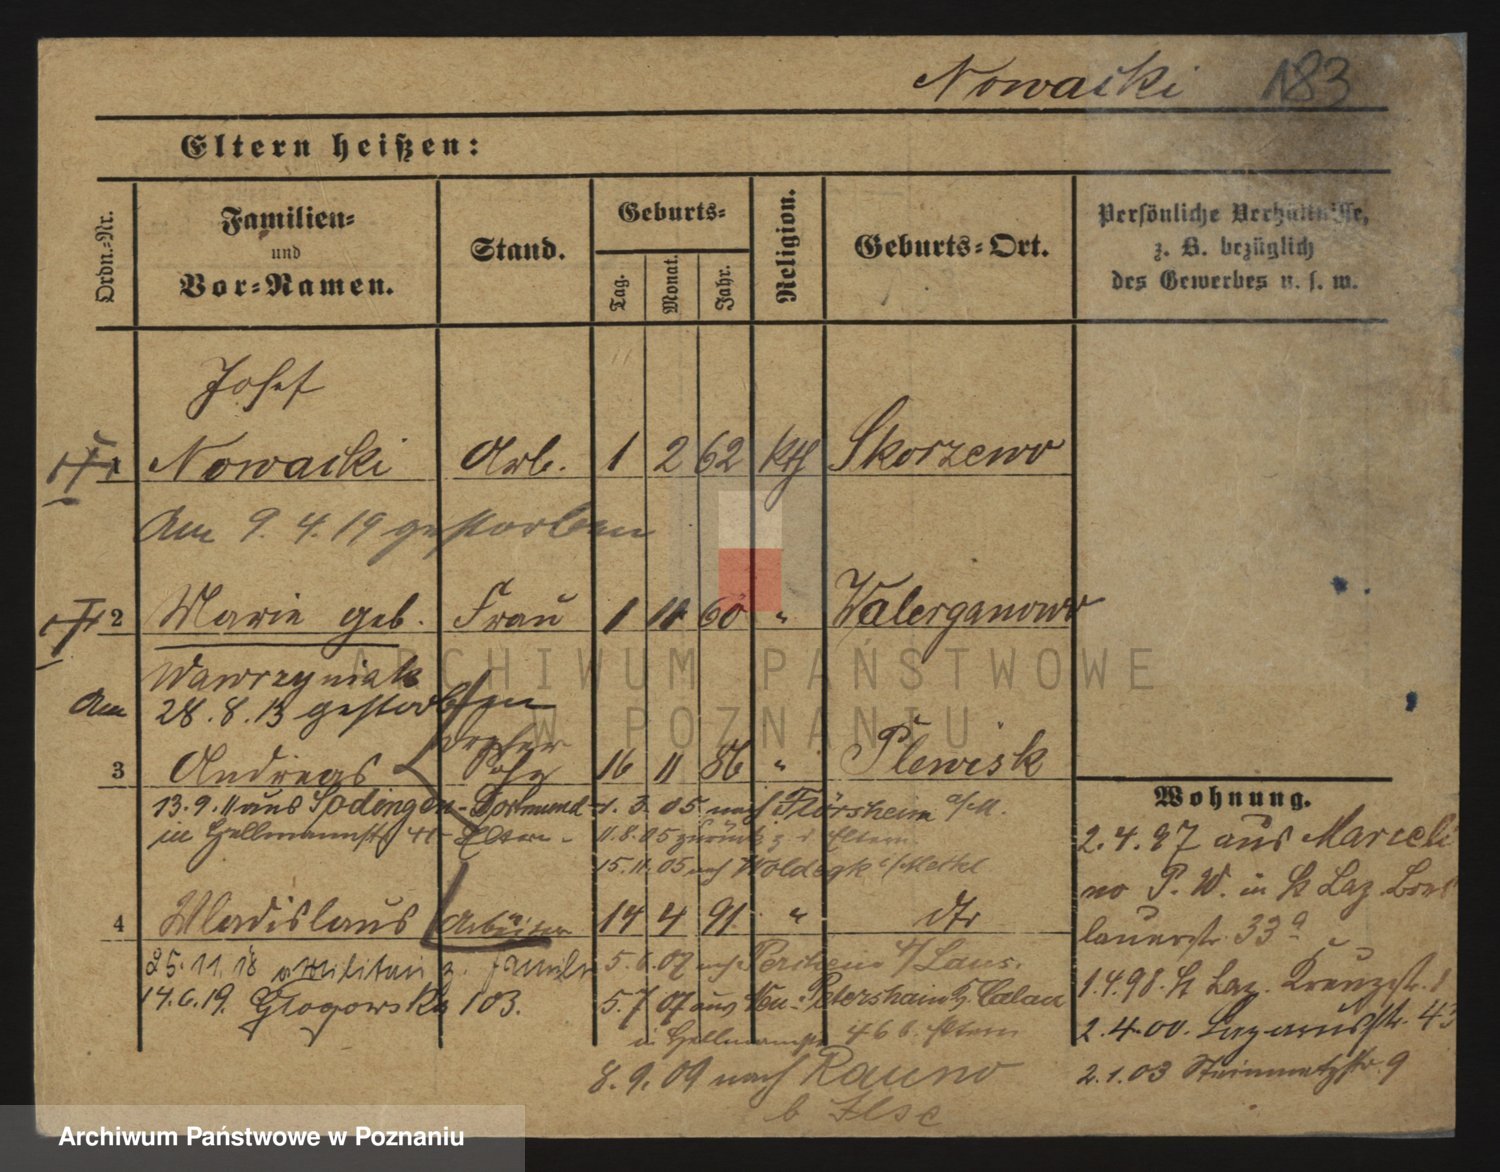 Nowacki 183
Eltern heißen:
Ordn.=Nr.
Familien=
und
Vor=Namen.
Stand.
Geburts=
Tag.
Monat.
Jahr.
Religion.
Geburts=Ort.
Persönliche Verhältnisse,
z. B. bezüglich
des Gewerbes u. s. w.
Josef
1 Nowacki Arb. 1 2 62 kth Skorzewo
Am 9.4.19 gestorben
2 Marie geb. Frau 1 11 60 " Walerganowo
Wawrzyniak
Am 28.8.13 gestorben
3 Andreas Sohn 16 11 86 " Plewisk
13.9.11 aus Sodingen - Dortmund 1.3.05 nach Flörsheim a/M.
in Hellmannstr - Eltern - 11.8.05 zurück z. d. Eltern
15.11.05 nach Woldegk i/Meckl
4 Wladislaus Arbeiter 14 4 91 " dto
25.11.18 v. Militär z. Familie 5.6.07 nach /Laus.
14.6.19. Glogowska 103. 5.7.07 aus Neu-Petershain Calau
in Hellmannstr Eltern
8.9.09 nach Rauno
b Ilse
Wohnung.
2.4.97 aus Marceli
no P. W. in St Laz. Bres
lauerstr. 33a
1.4.98. St Laz. Kreuzstr. 1
2.4.00. Lazarusstr. 43
2.1.03 Steinmetzstr. 9
ARCHIWUM PAŃSTWOWE
W POZNANIU
Archiwum Państwowe w Poznaniu